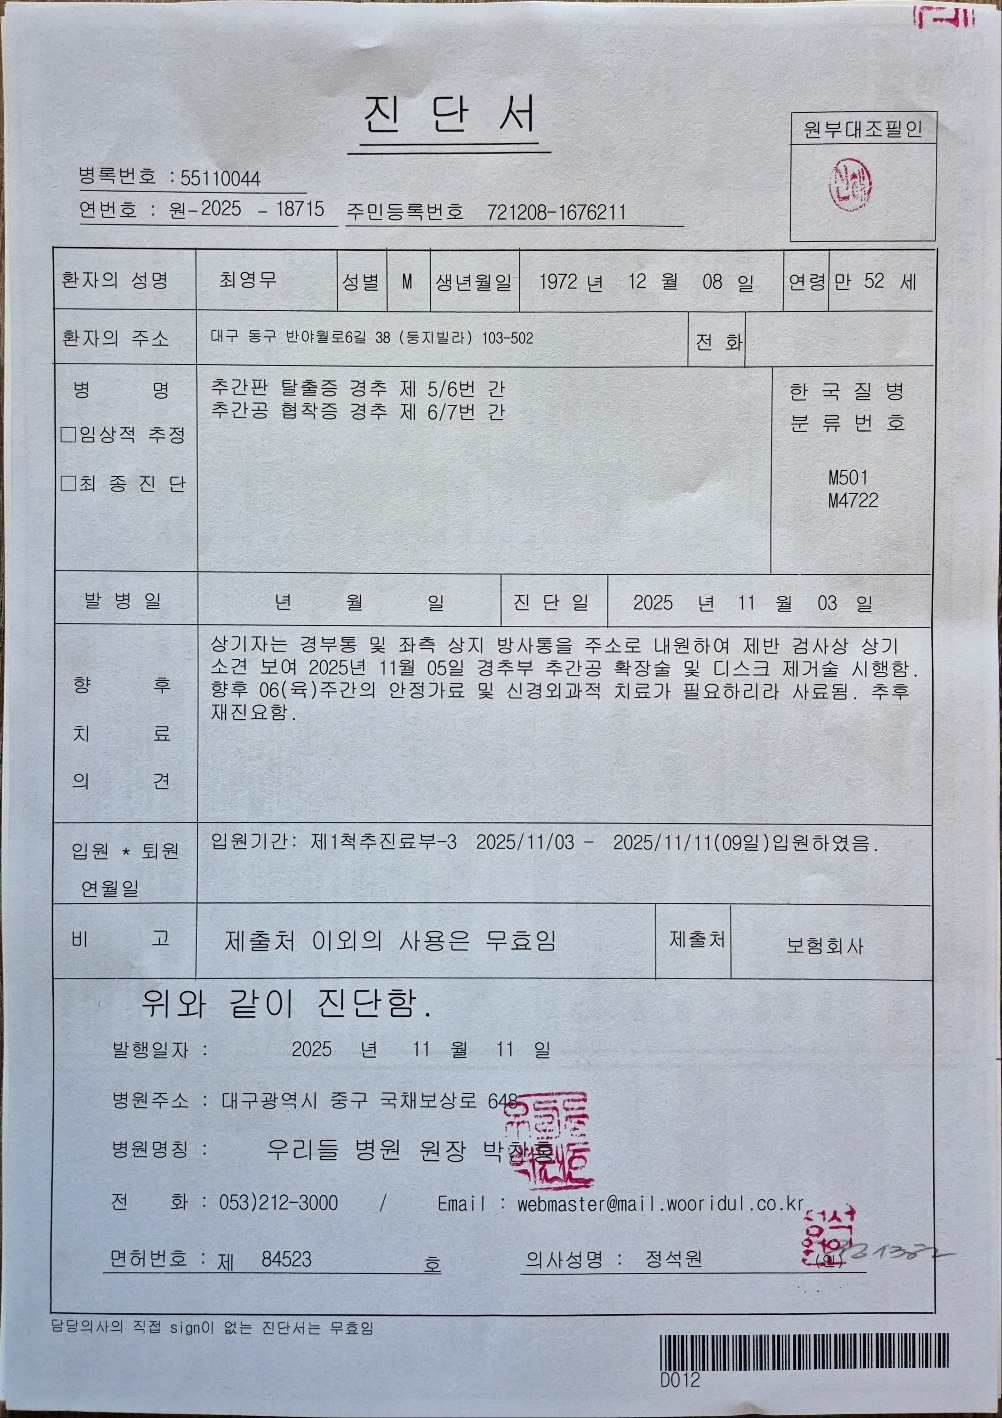 진 단 서
원부대조필인
병록번호 : 55110044
연번호 : 원-2025 - 18715 주민등록번호 721208-1676211
환자의 성명 최영무 성별 M 생년월일 1972 년 12 월 08 일 연령 만 52 세
환자의 주소 대구 동구 반야월로6길 38 (둥지빌라) 103-502 전 화
병 명 추간판 탈출증 경추 제 5/6번 간 한 국 질 병
추간공 협착증 경추 제 6/7번 간 분 류 번 호
□임상적 추정
□최 종 진 단 M501
M4722
발 병 일 년 월 일 진 단 일 2025 년 11 월 03 일
상기자는 경부통 및 좌측 상지 방사통을 주소로 내원하여 제반 검사상 상기
소견 보여 2025년 11월 05일 경추부 추간공 확장술 및 디스크 제거술 시행함.
향 후 향후 06(육)주간의 안정가료 및 신경외과적 치료가 필요하리라 사료됨. 추후
재진요함.
치 료
의 견
입원 * 퇴원 입원기간: 제1척추진료부-3 2025/11/03 - 2025/11/11(09일)입원하였음.
연월일
비 고 제출처 이외의 사용은 무효임 제출처 보험회사
위와 같이 진단함.
발행일자 : 2025 년 11 월 11 일
병원주소 : 대구광역시 중구 국채보상로 648
병원명칭 : 우리들 병원 원장 박찬홍
전 화 : 053)212-3000 / Email : webmaster@mail.wooridul.co.kr
면허번호 : 제 84523 호 의사성명 : 정석원 (인)
담당의사의 직접 sign이 없는 진단서는 무효임
D012